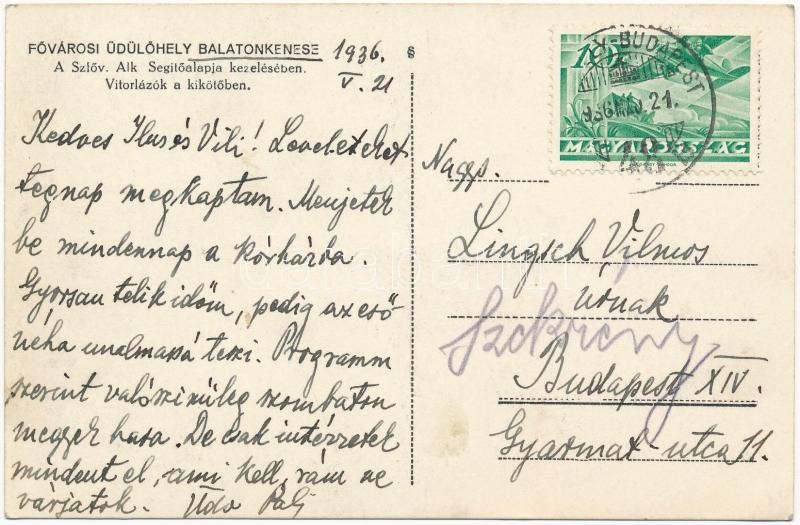 FŐVÁROSI ÜDÜLŐHELY BALATONKENESE
A Szföv. Alk Segitőalapja kezelésében.
Vitorlázók a kikötőben.
1936.
V. 21
Kedves Ilus és Vili! Leveleteket
tegnap megkaptam. Menjetek
be mindennap a kórházba.
Gyorsan telik időm, pedig az eső
néha unalmassá teszi. Programm
szerint valószinüleg szombaton
megyek haza. De csak intézzetek
mindent el, ami kell, rám ne
várjatok. Üdv Pali
BUDAPEST
936 MÁJ 21.
MAGYARORSZÁG
Nags.
Lingsch Vilmos
úrnak
Szekrény
Budapest XIV.
Gyarmat utca 11.